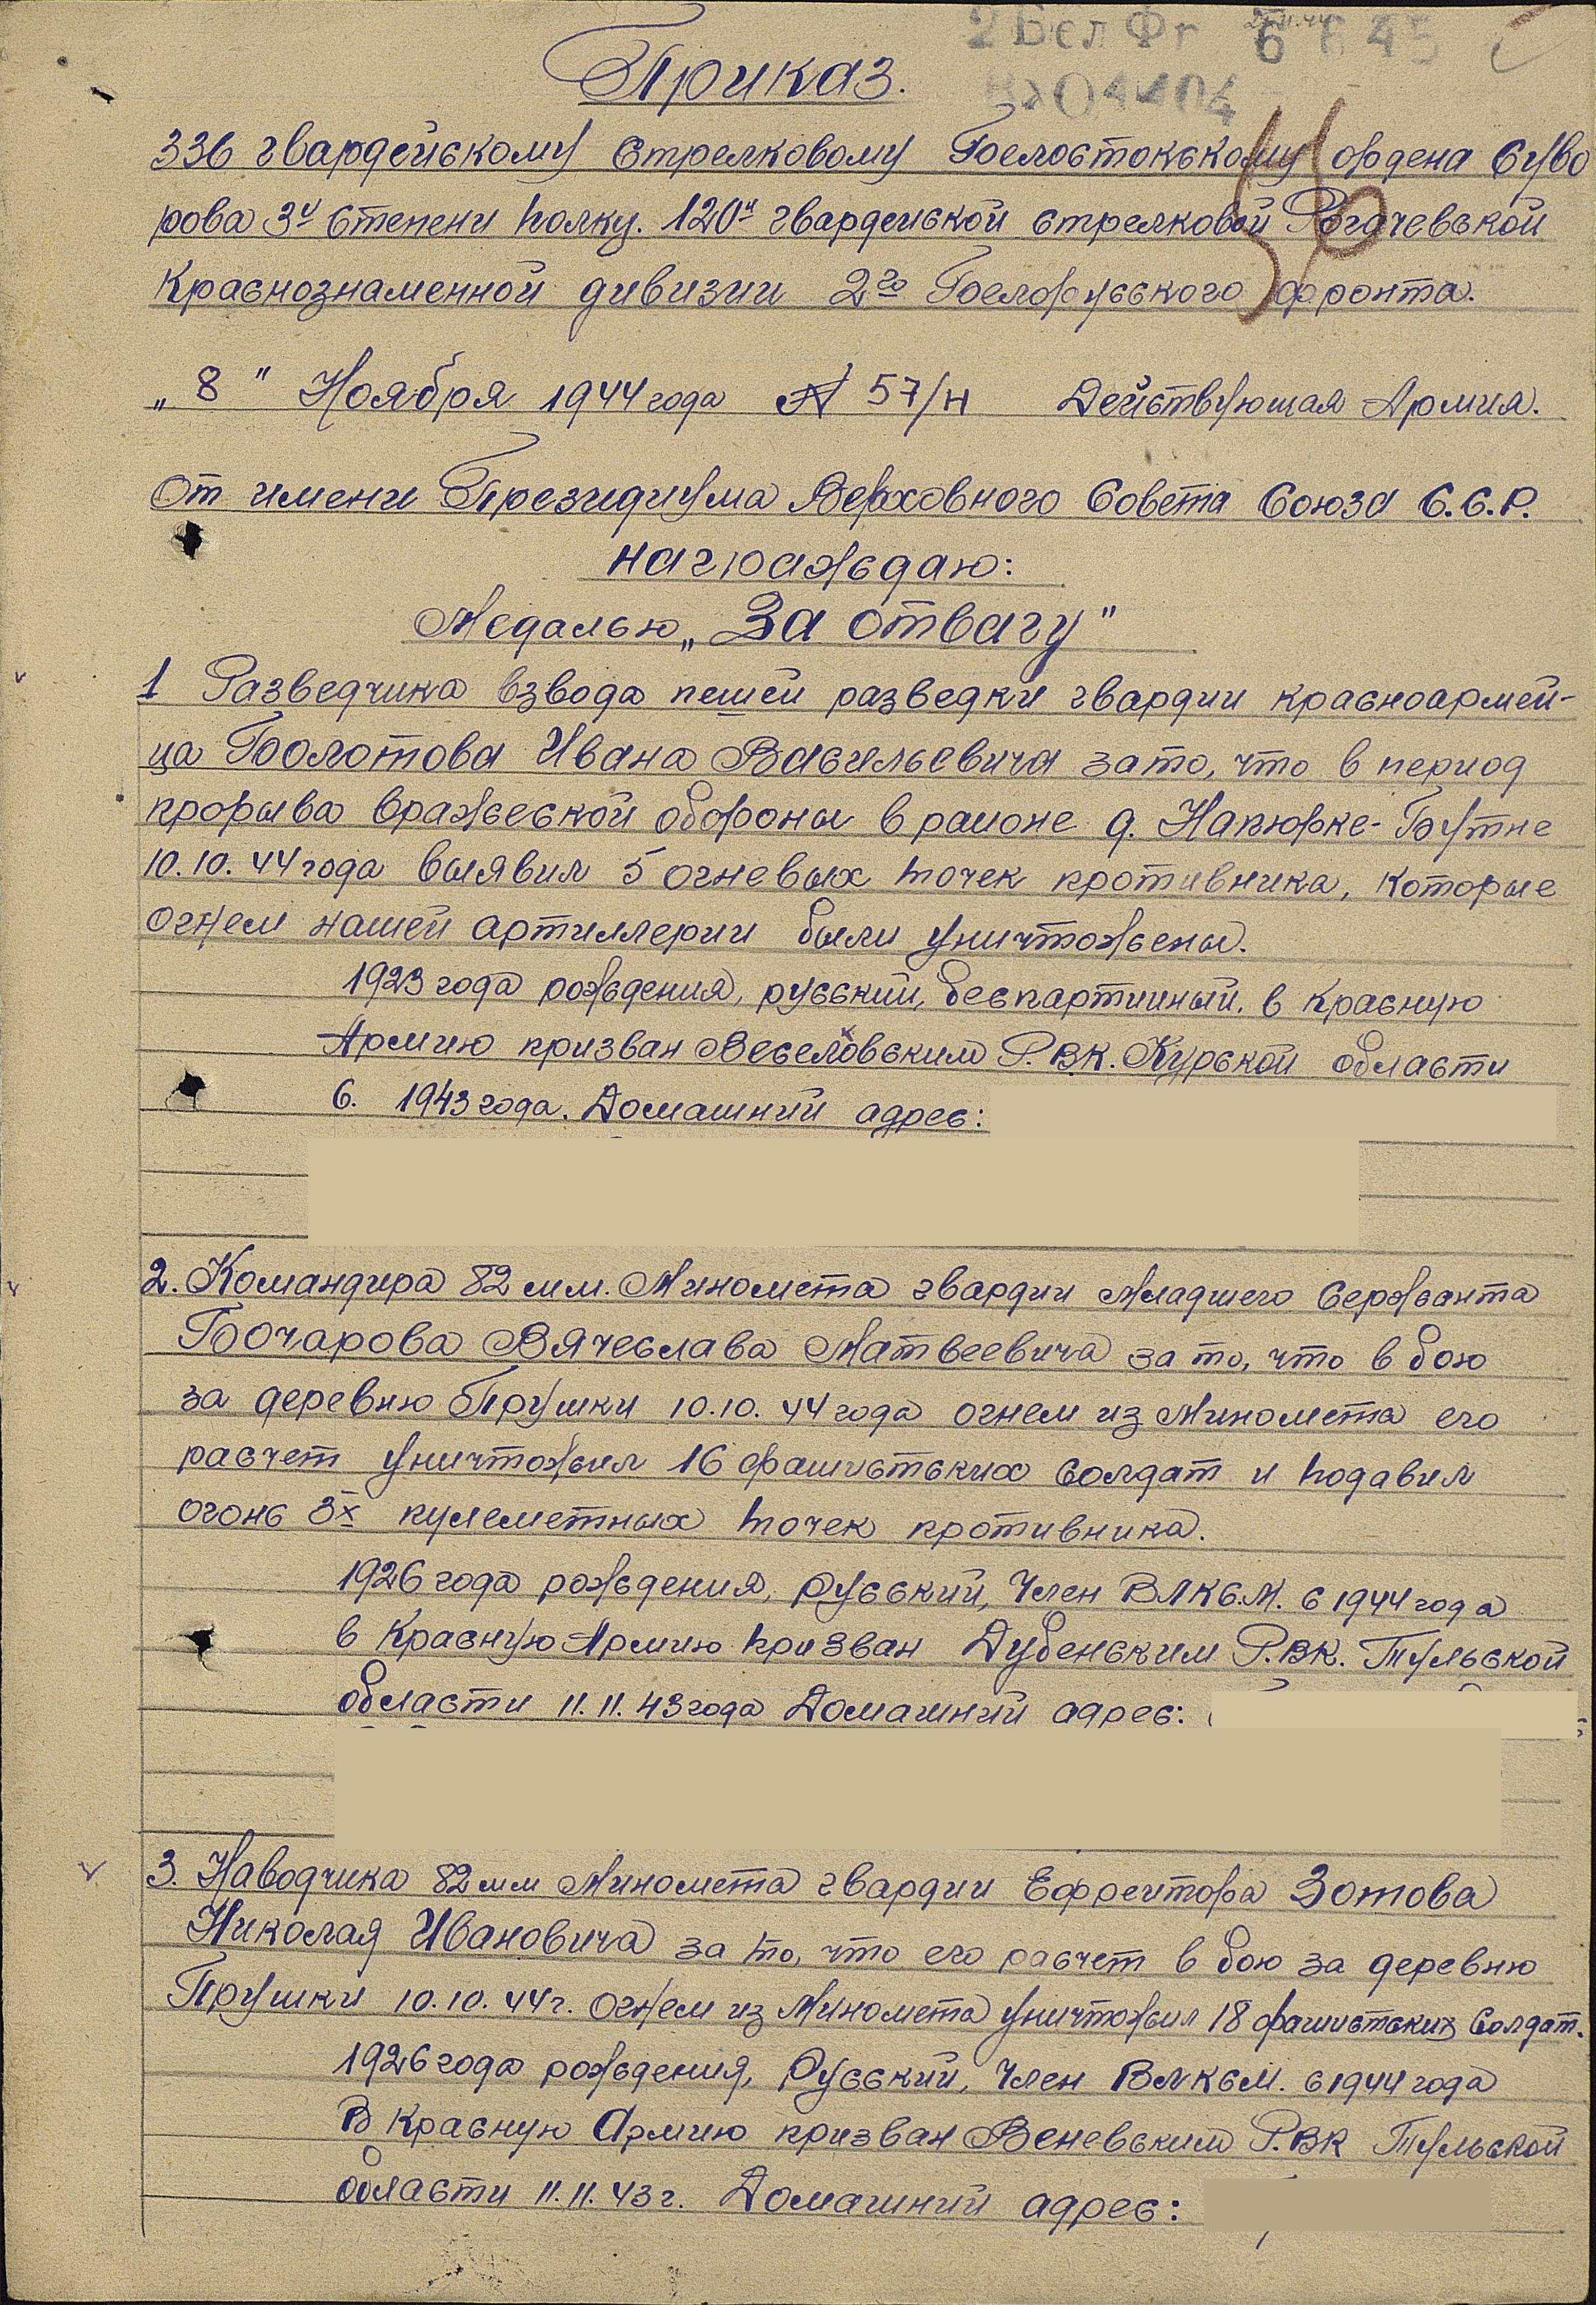 2 Бел Фг 6 6 45
Вх 04404
Приказ.
56
336 гвардейскому стрелковому Белостокскому ордена Суво
рова 3й степени полку. 120й гвардейской стрелковой Рогачевской
Краснознаменной дивизии 2го Белорусского фронта.
„8" Ноября 1944 года № 57/н Действующая Армия.
От имени Президиума Верховного Совета Союза С.С.Р.
награждаю:
Медалью „За отвагу"
1 Разведчика взвода пешей разведки гвардии красноармей-
ца Болотова Ивана Васильевича за то, что в период
прорыва вражеской обороны в районе д. Напюрке-Бутне
10.10.44 года выявил 5 огневых точек противника, которые
огнем нашей артиллерии были уничтожены.
1923 года рождения, русский, беспартийный. в Красную
Армию призван Веселовским Р.ВК. Курской области
6. 1943 года. Домашний адрес:
2. Командира 82 мм. Миномета гвардии Младшего Сержанта
Бочарова Вячеслава Матвеевича за то, что в бою
за деревню Прушки 10.10.44 года огнем из Миномета его
расчет уничтожил 16 фашистских солдат и подавил
огонь 3х пулеметных точек противника.
1926 года рождения, Русский, Член ВЛКС.М. с 1944 года
в Красную Армию призван Дубенским Р.ВК. Тульской
области 11.11.43 года Домашний адрес:
3. Наводчика 82 мм Миномета гвардии Ефрейтора Зотова
Николая Ивановича за то, что его расчет в бою за деревню
Прушки 10.10.44г. Огнем из Миномета уничтожил 18 фашистских Солдат.
1926 года рождения, Русский, Член ВЛКСМ. с 1944 года
В Красную Армию призван Веневским Р.ВК Тульской
области 11.11.43г. Домашний адрес: